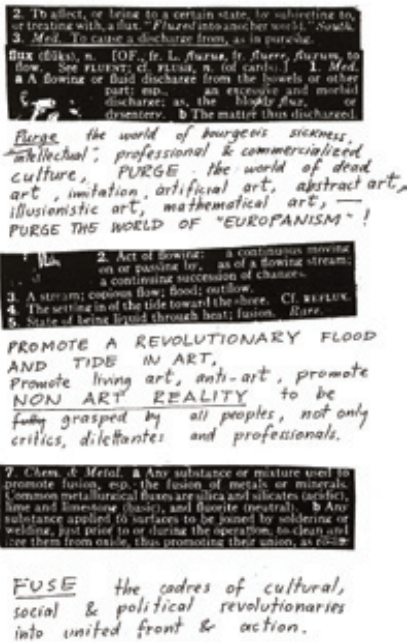 2. To affect, or bring to a certain state, by subjecting to,
or treating with, a flux. "Fluxed into another world." South.
3. Med. To cause a discharge from, as in purging.
flux (flŭks), n. [OF., fr. L. fluxus, fr. fluere, fluxum, to
flow. See FLUENT; cf. FLUSH, n. (of cards).] 1. Med.
a A flowing or fluid discharge from the bowels or other
part; esp., an excessive and morbid
discharge; as, the bloody flux, or
dysentery. b The matter thus discharged.
Purge the world of bourgeois sickness,
"intellectual", professional & commercialized
culture, PURGE the world of dead
art, imitation, artificial art, abstract art,
illusionistic art, mathematical art, —
PURGE THE WORLD OF "EUROPANISM"!
2. Act of flowing: a continuous moving
on or passing by, as of a flowing stream;
a continuing succession of changes.
3. A stream; copious flow; flood; outflow.
4. The setting in of the tide toward the shore. Cf. REFLUX.
5. State of being liquid through heat; fusion. Rare.
PROMOTE A REVOLUTIONARY FLOOD
AND TIDE IN ART.
Promote living art, anti-art, promote
NON ART REALITY to be
fully grasped by all peoples, not only
critics, dilettantes and professionals.
7. Chem. & Metal. a Any substance or mixture used to
promote fusion, esp. the fusion of metals or minerals.
Common metallurgical fluxes are silica and silicates (acidic),
lime and limestone (basic), and fluorite (neutral). b Any
substance applied to surfaces to be joined by soldering or
welding, just prior to or during the operation, to clean and
free them from oxide, thus promoting their union, as rosin.
FUSE the cadres of cultural,
social & political revolutionaries
into united front & action.